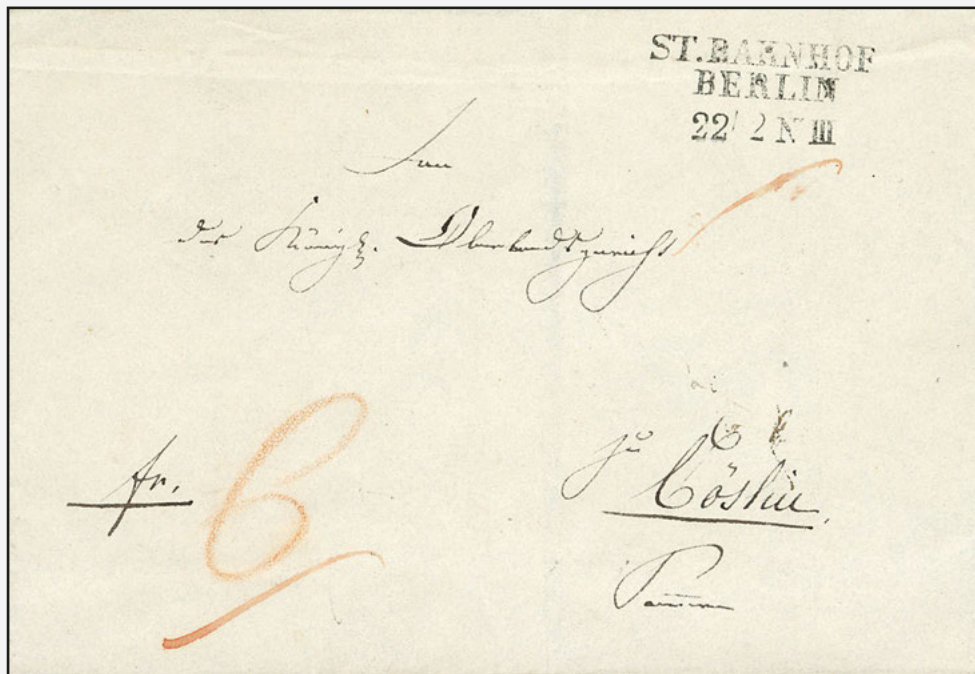 ST. BAHNHOF
BERLIN
22/2 N III
An
das Königl. Oberlandsgericht
fr. 6
zu Cöslin.
Pommern